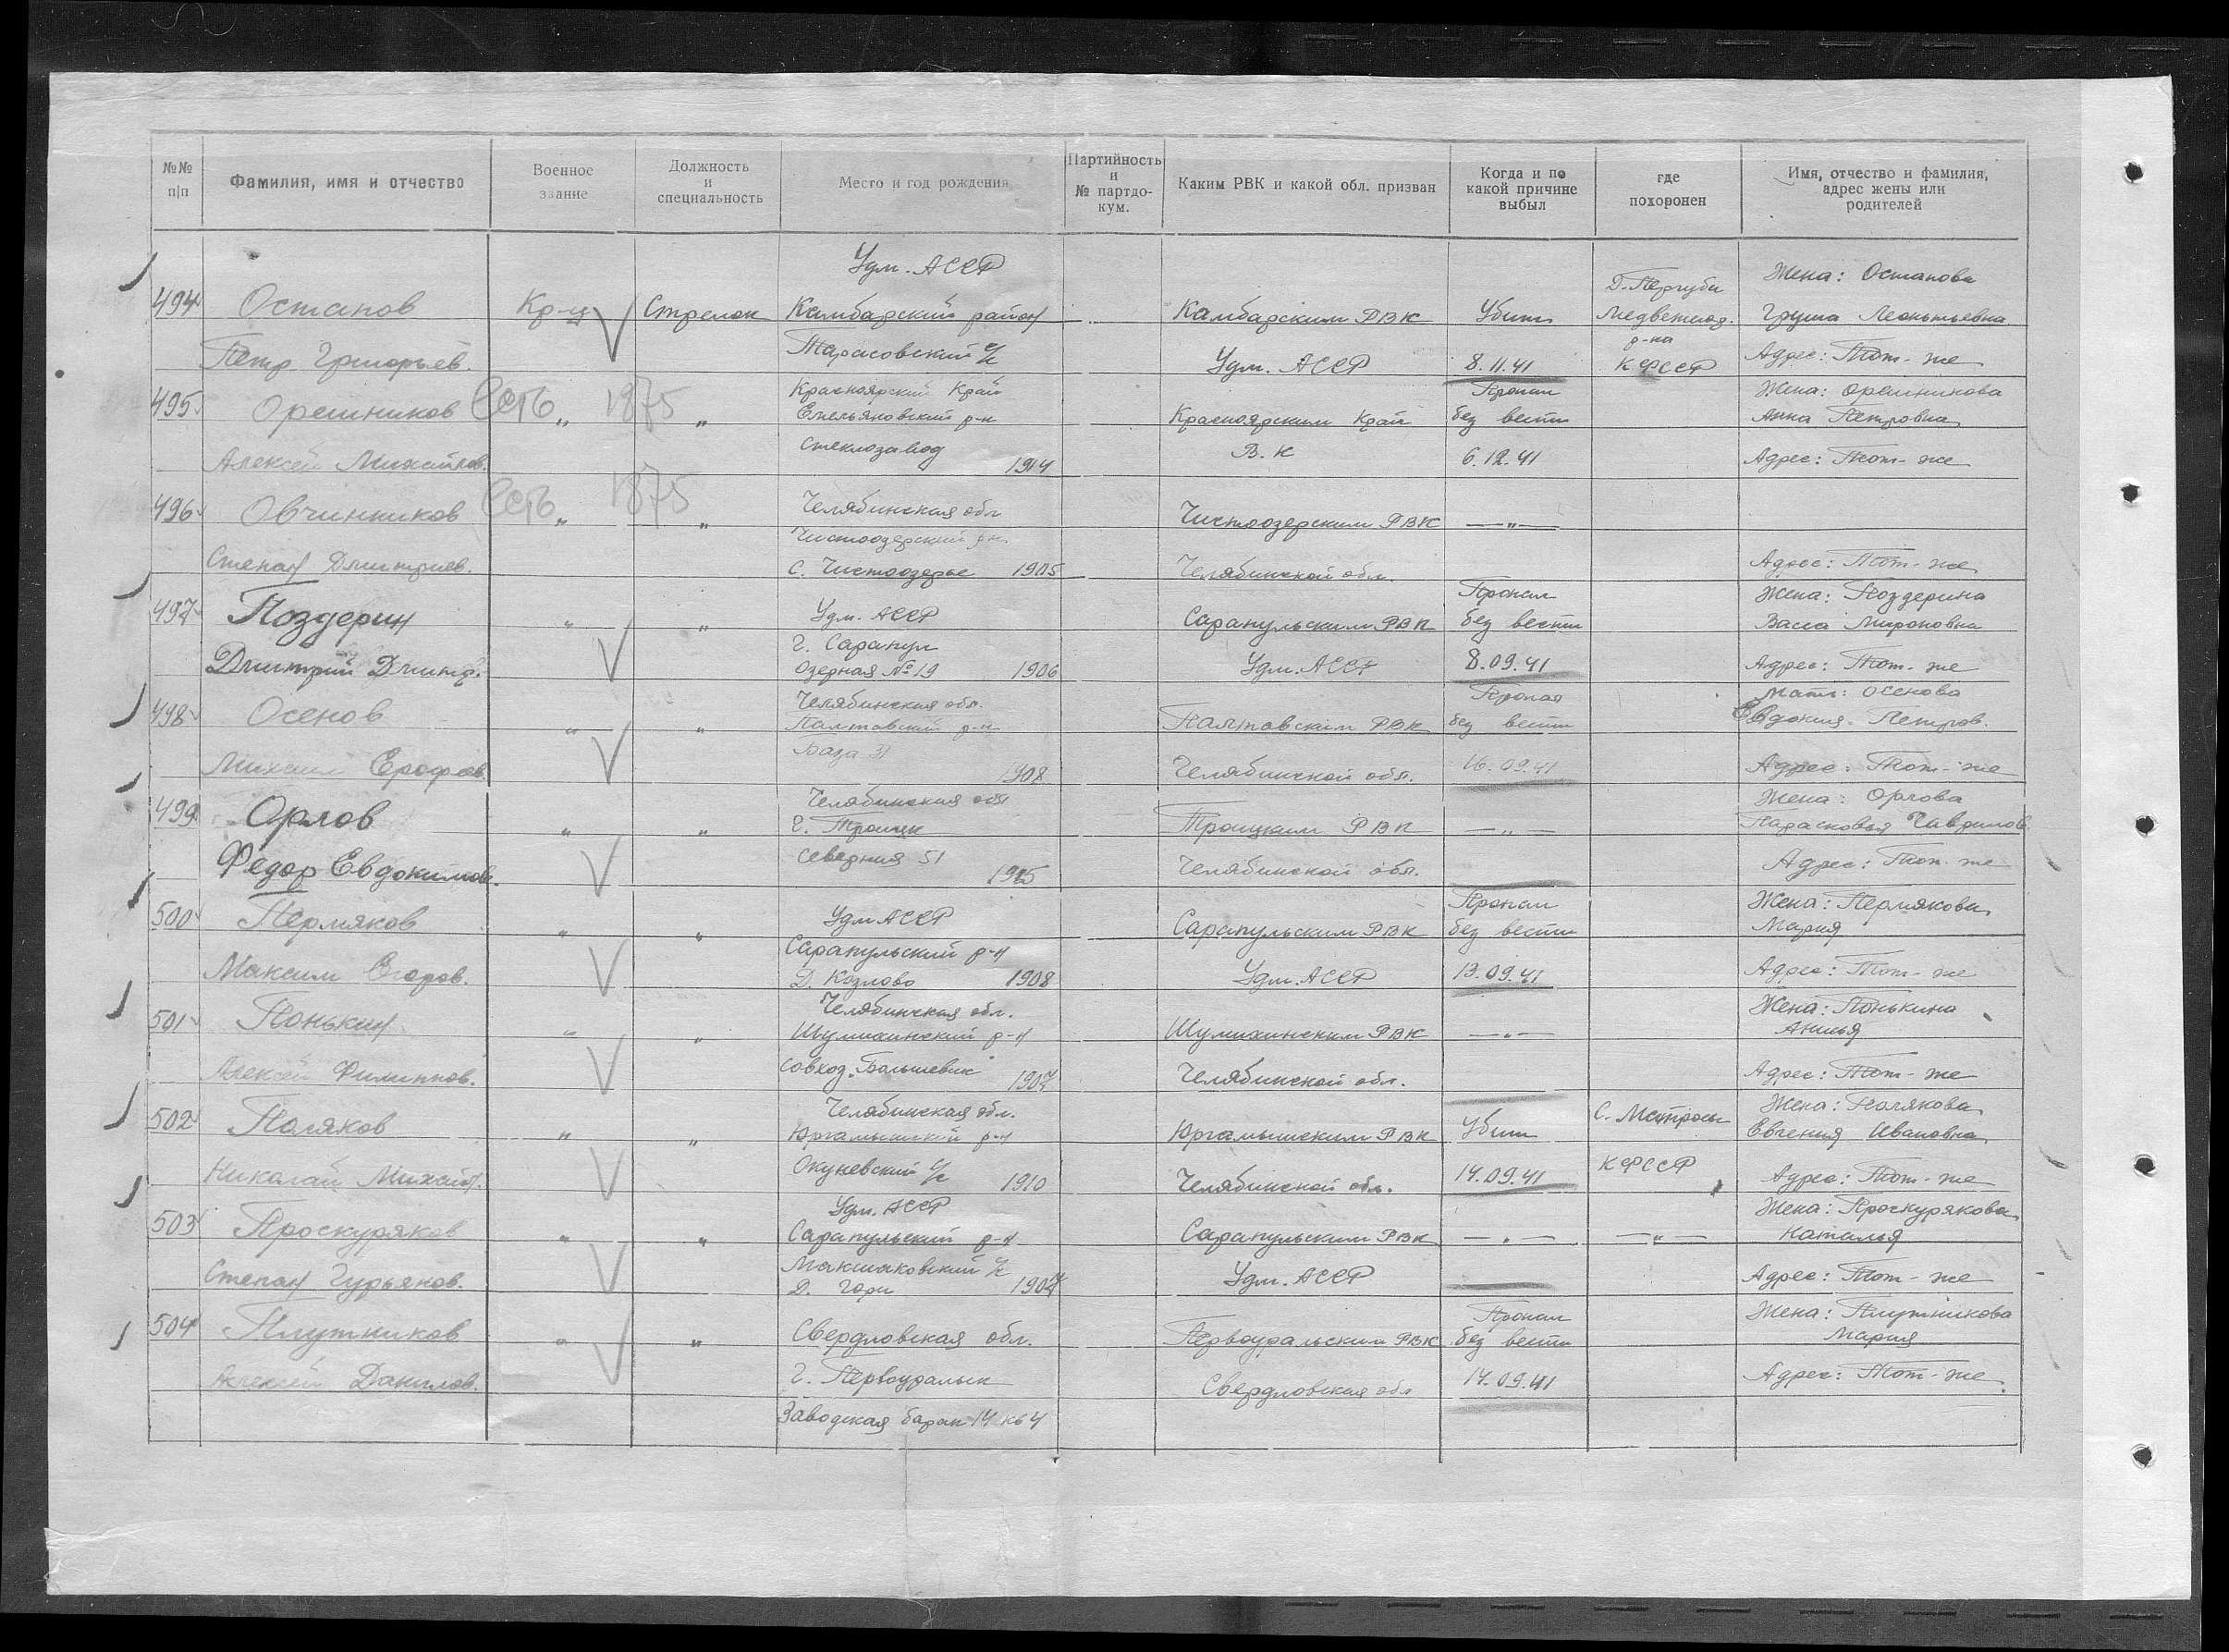 №№ п/п
Фамилия, имя и отчество
Военное звание
Должность и специальность
Место и год рождения
Партийность и № партдокум.
Каким РВК и какой обл. призван
Когда и по какой причине выбыл
где похоронен
Имя, отчество и фамилия, адрес жены или родителей
Удм. АССР Жена: Останова
Д. Пергуба
494 Останов Кр-ц Стрелок Камбарский район Камбарским РВК Убит Медвежьег. Груша Леонтьевна
р-на
Петр Григорьев. Тарасовский с/с Удм. АССР 8.11.41 КФССР Адрес: Тот-же
Красноярский Край Пропал Жена: Орешникова
495 Орешников Есть „ 1875 „ Емельяновский р-н Красноярским Край без вести Анна Петровна
Алексей Михайлов. Стеклозавод 1914 В.К 6.12.41 Адрес: Тот-же
496 Овчинников Есть „ 1875 „ Челябинская обл Чистоозерским РВК — „ —
Чистоозерский р-н
Степан Дмитриев. С. Чистоозерье 1905 Челябинской обл. Адрес: Тот-же
Пропал Жена: Поздерина
497 Поздерин „ „ Удм. АССР Сарапульским РВК без вести Васса Мироновна
г. Сарапул
Дмитрий Дмитр. Озерная №19 1906 Удм. АССР 8.09.41 Адрес: Тот-же
Челябинская обл. Пропал Мать: Осенова
498 Осенов „ „ Палтовский р-н Палтовским РВК без вести Евдокия Петров.
База 31
Михаил Ерофеев. 1908 Челябинской обл. 16.09.41 Адрес: Тот-же
Челябинская обл Жена: Орлова
499 Орлов „ „ г. Троицк Троицким РВК — „ — Парасковья Гаврилов.
Федор Евдокимов. Северная 51 1915 Челябинской обл. Адрес: Тот-же
Пропал Жена: Пермякова
500 Пермяков „ „ Удм АССР Сарапульским РВК без вести Мария
Сарапульский р-н
Максим Егоров. Д. Козлово 1908 Удм. АССР 13.09.41 Адрес: Тот-же
Челябинская обл. Жена: Понькина
501 Понькин „ „ Шумихинский р-н Шумихинским РВК — „ — Анисья
Алексей Филиппов. Совхоз „Большевик 1907 Челябинской обл. Адрес: Тот-же
Челябинская обл. Жена: Полякова
502 Поляков „ „ Юргамышский р-н Юргамышским РВК Убит С. Матросы Евгения Ивановна
Николай Михайл. Окуневский с/с 1910 Челябинской обл. 14.09.41 КФССР Адрес: Тот-же
Удм. АССР Жена: Проскурякова
503 Проскуряков „ „ Сарапульский р-н Сарапульским РВК — „ — — „ — Наталья
Макшаковский с/с
Степан Гурьянов. Д. Гари Удм. АССР Адрес: Тот-же
Пропал Жена: Плутникова
504 Плутников „ „ Свердловская обл. Первоуральским РВК без вести Мария
Алексей Данилов. г. Первоуральск Свердловская обл 14.09.41 Адрес: Тот-же.
Заводская барак 14 кв 4